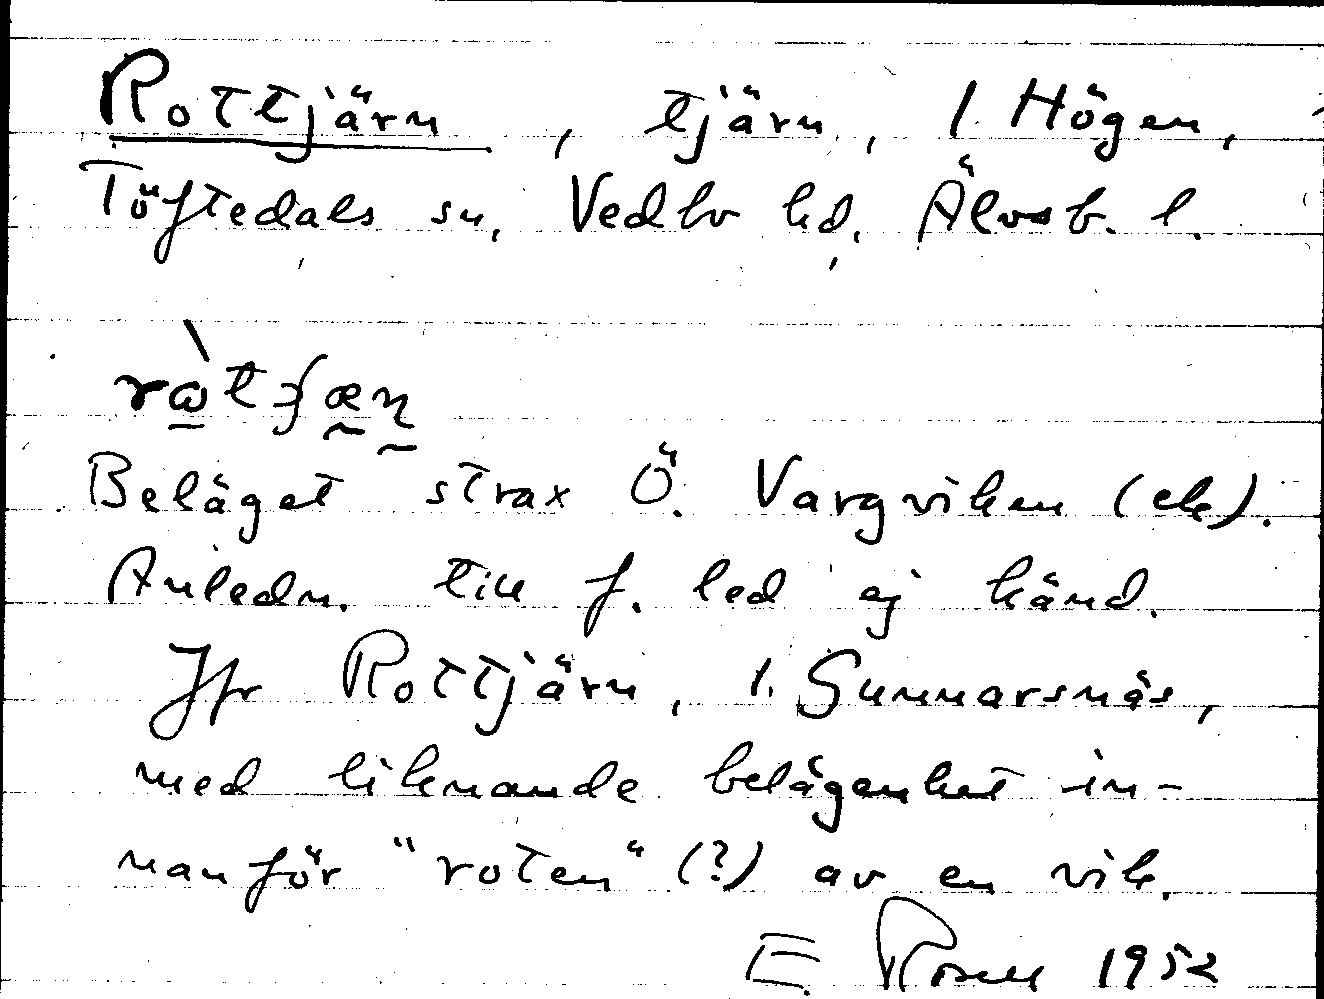 Rottjärn, tjärn, l. Högen,
Töftedals sn, Vedbo hd, Älvsb. l.
Beläget strax Ö. Vargviken (ek).
Anledn. till f. led ej känd.
Jfr Rottjärn, l. Gunnarsnäs,
med liknande belägenhet in-
nanför "roten" (?) av en vik.
E. Rosell 1952